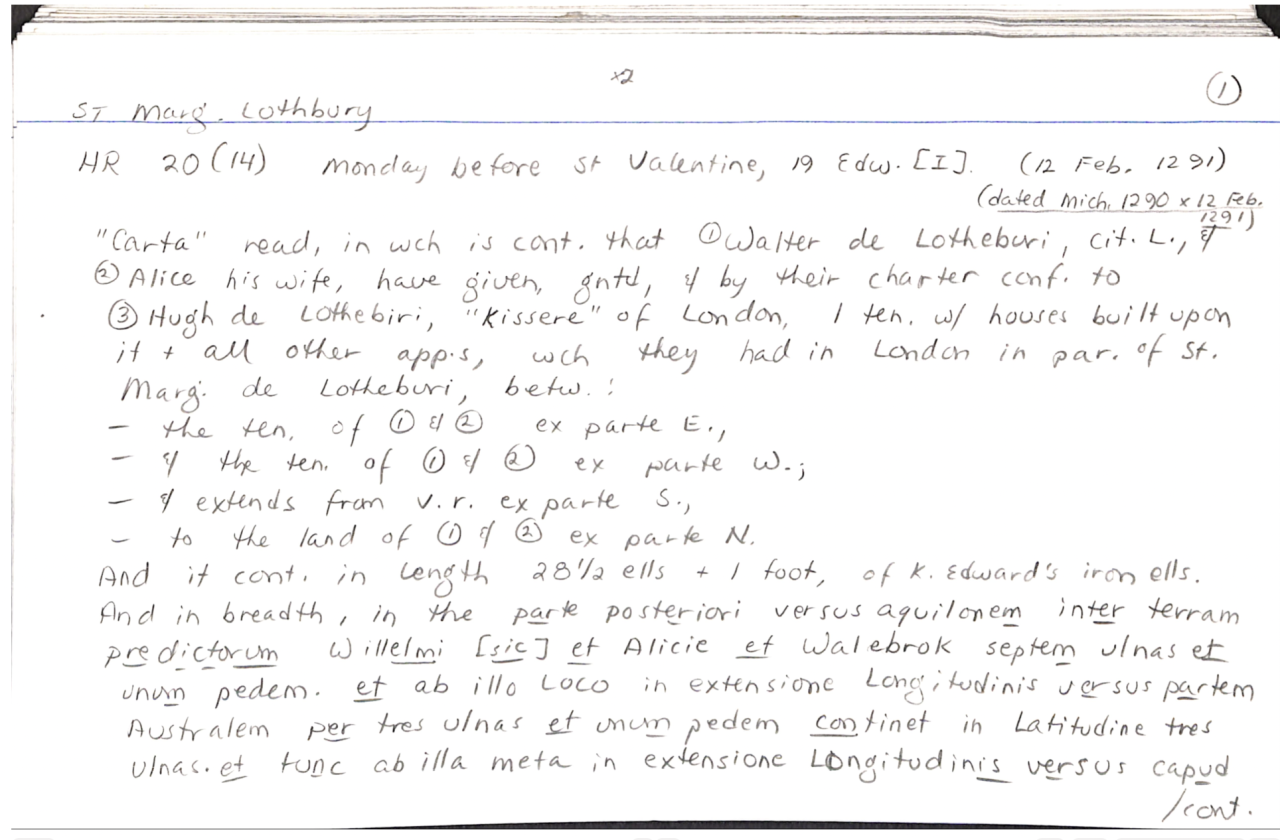 x2
①
ST Marg. Lothbury
HR 20(14) Monday before St Valentine, 19 Edw. [I]. (12 Feb. 1291)
(dated Mich. 1290 x 12 Feb. 1291)
"Carta" read, in wch is cont. that ① Walter de Lotheburi, cit. L., &
② Alice his wife, have given, gntd, & by their charter conf. to
③ Hugh de Lothebiri, "Kissere" of London, 1 ten. w/ houses built upon
it + all other app.s, wch they had in London in par. of St.
Marg. de Lotheburi, betw.:
- the ten. of ① & ② ex parte E.,
- & the ten. of ① & ② ex parte W.;
- & extends from v.r. ex parte S.,
- to the land of ① & ② ex parte N.
And it cont. in length 28 1/2 ells + 1 foot, of K. Edward's iron ells.
And in breadth, in the parte posteriori versus aquilonem inter terram
predictorum Willelmi [sic] et Alicie et Walebrok septem ulnas et
unum pedem. et ab illo loco in extensione Longitudinis versus partem
Australem per tres ulnas et unum pedem continet in Latitudine tres
ulnas. et tunc ab illa meta in extensione Longitudinis versus capud
/cont.